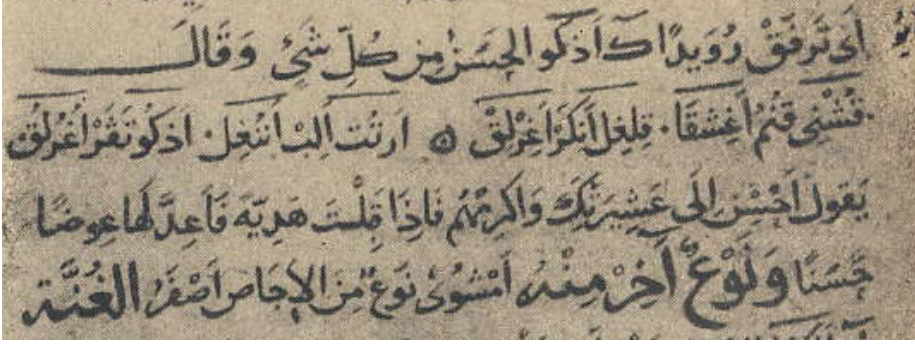 اَىْ تَرَفَّقْ رُوَيدًا كَ اَذكو الحَسَنُ مِن كُلِّ شَىْءٍ وَقَالَـــ
قُشْنِى قُتُمْ اَغِشقَا ۰ قِلغِل اَنكَرْ اَغِرْلِقْ ۞ اَرتُت اَلِبْ اَنُنغِل ۰ اَذكو تَفَرْ اُغُرْلُقْ
يَقول اَحْسِنْ اِلَى عَشِيرَتِكَ وَاَكرِمْهُم فَاِذَا قَبِلْتَ هَدِيّه فَاَعِدَّ لَهَا عِوضًا
حَسَنًا وَنَوْعٌ آخَرُ مِنْهُ اَمْشُوىْ نَوعٌ مِنَ الاِجَّاصِ اَصْفَرُ الغُنَّة